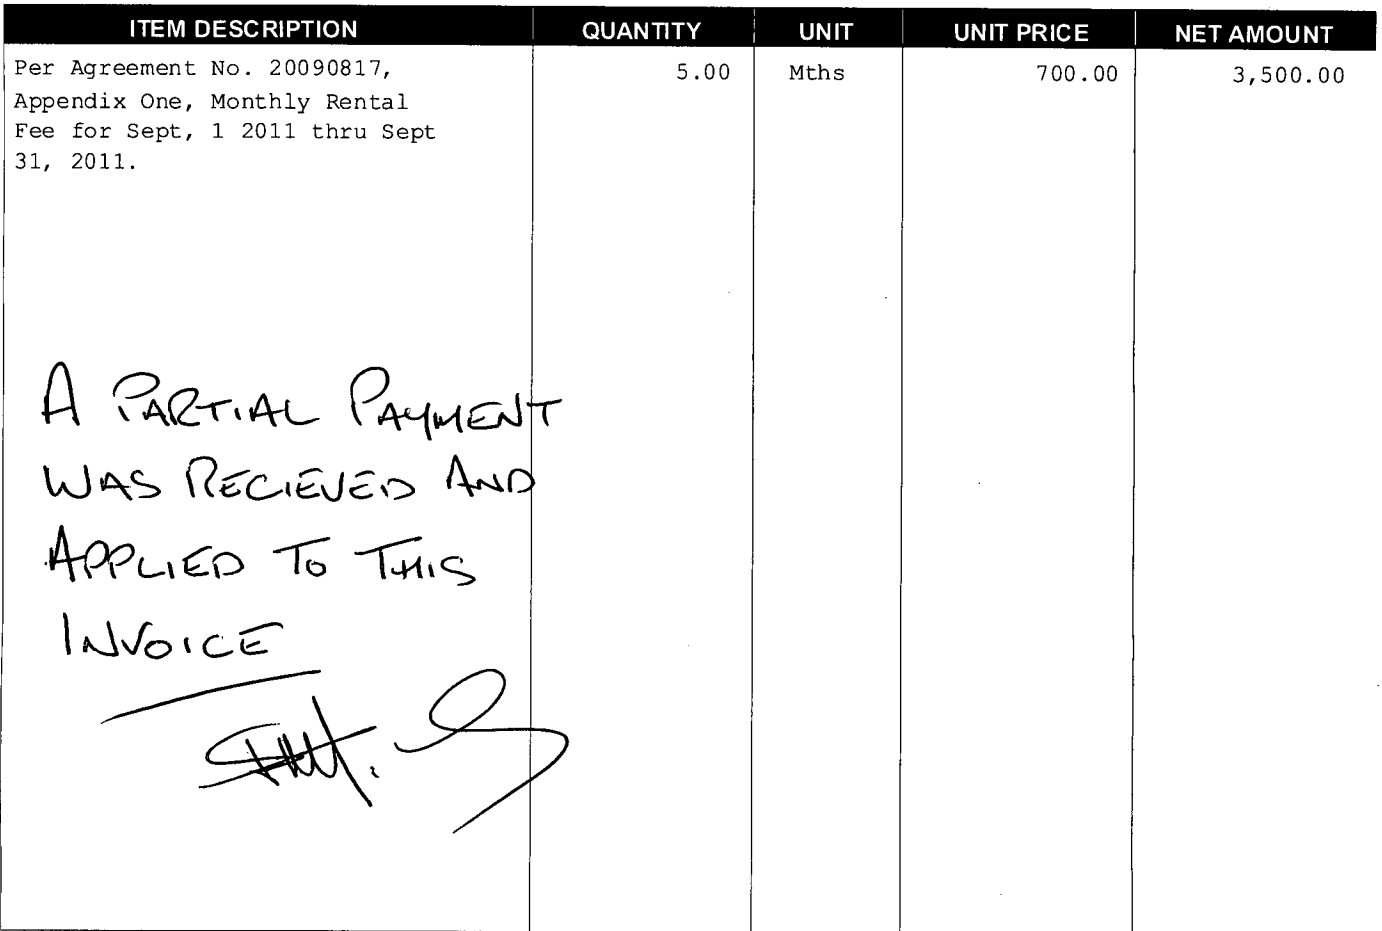 ITEM DESCRIPTION QUANTITY UNIT UNIT PRICE NET AMOUNT
Per Agreement No. 20090817, 5.00 Mths 700.00 3,500.00
Appendix One, Monthly Rental
Fee for Sept, 1 2011 thru Sept
31, 2011.
A PARTIAL PAYMENT
WAS RECIEVED AND
APPLIED TO THIS
INVOICE